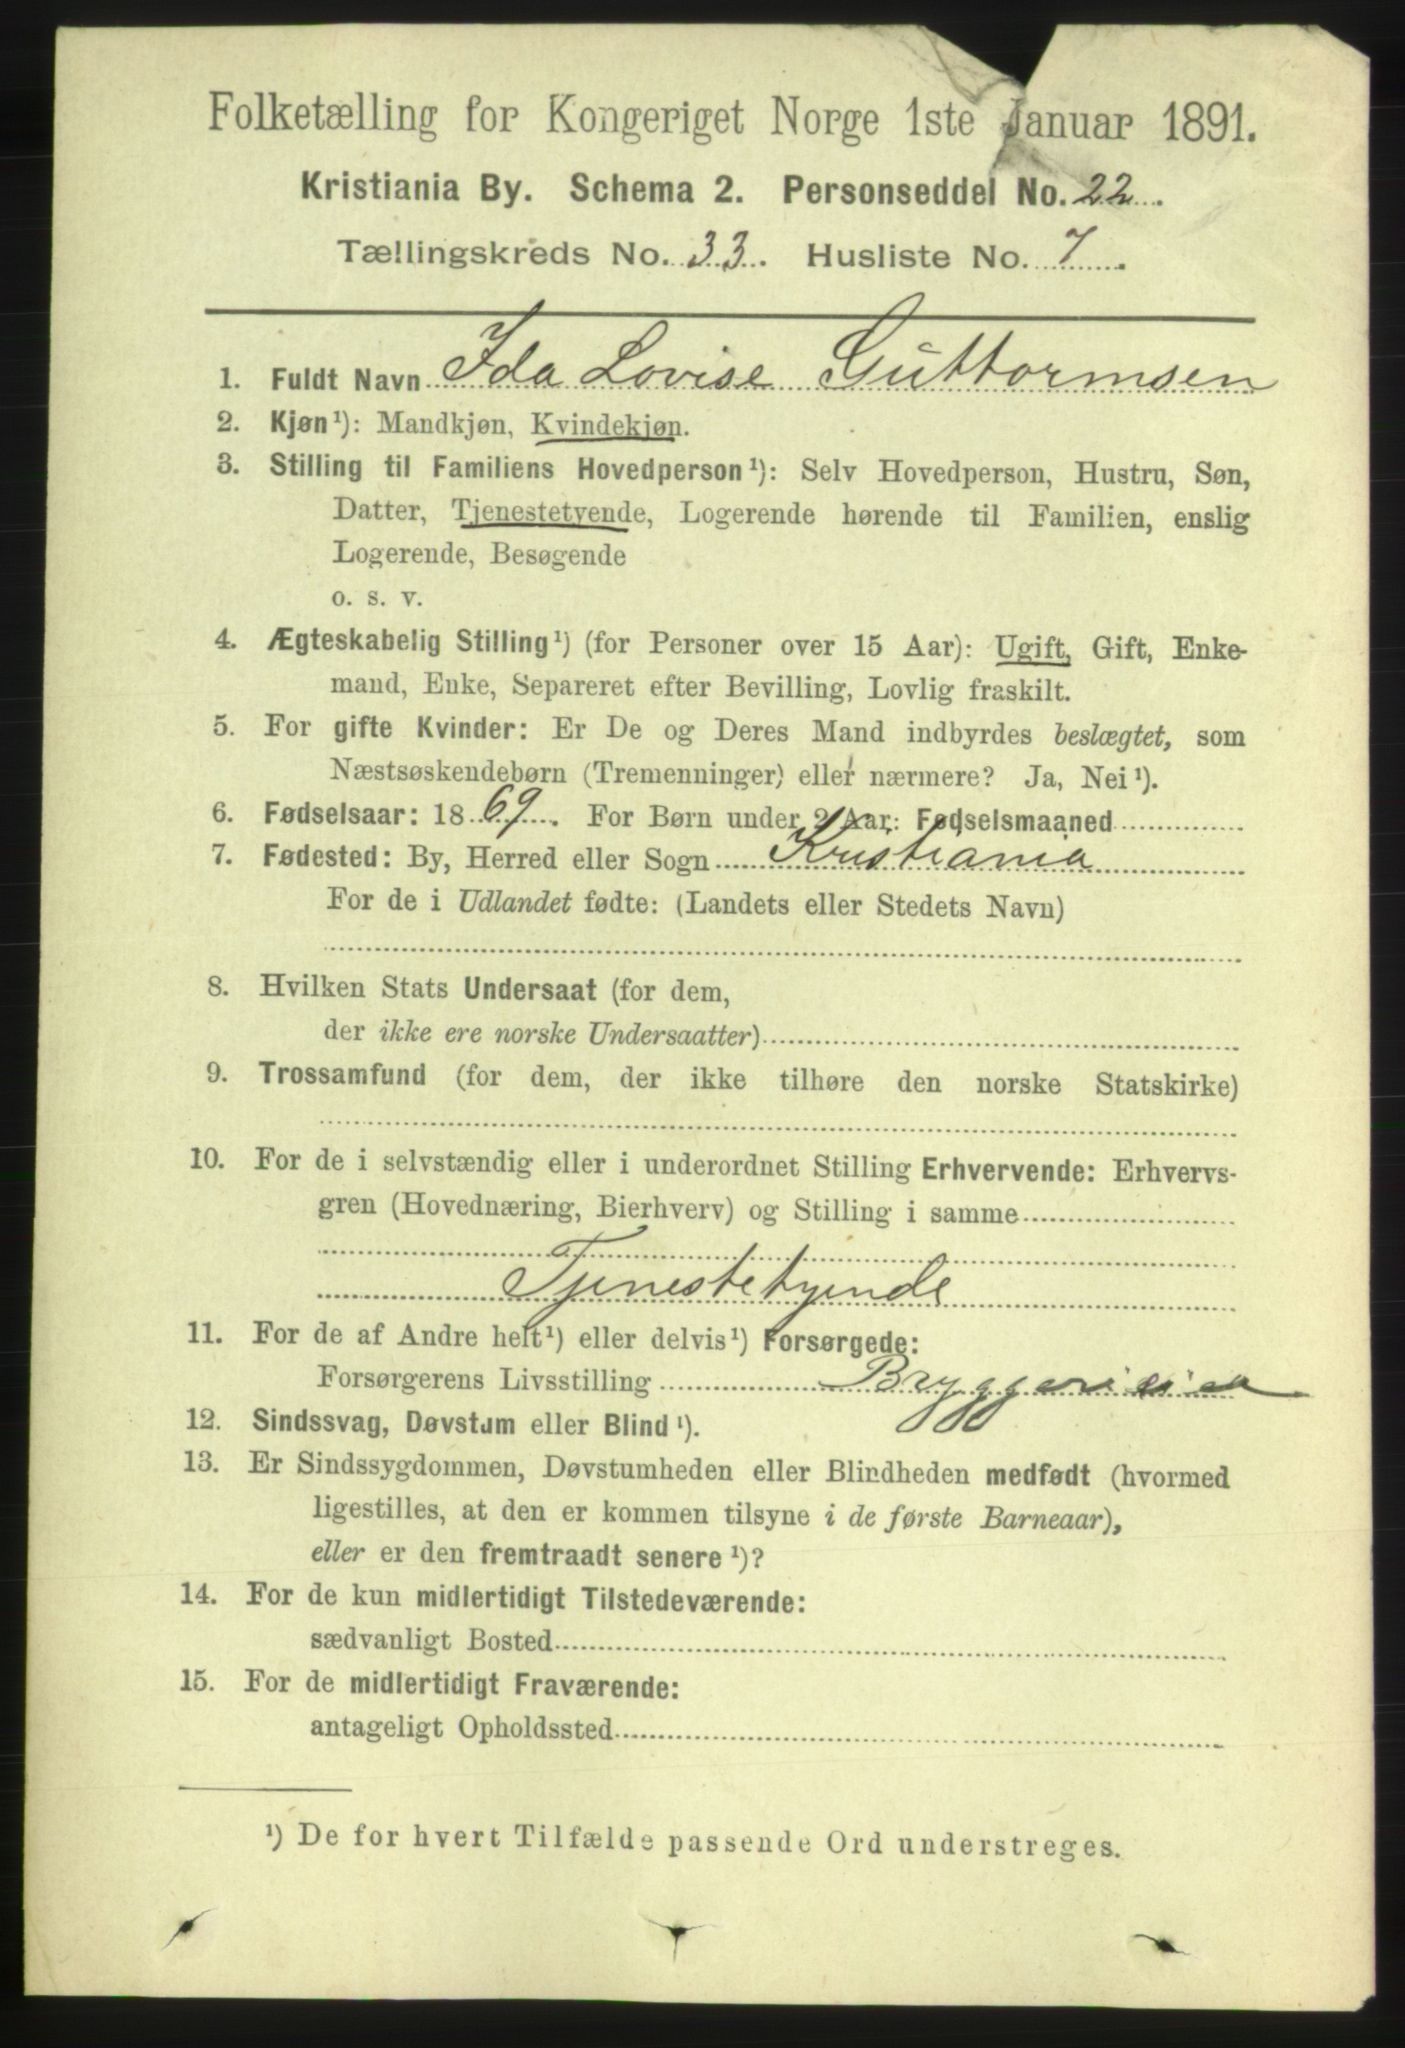 Folketælling for Kongeriget Norge 1ste Januar 1891.
Kristiania By. Schema 2. Personseddel No. 22.
Tællingskreds No. 33. Husliste No. 7
1. Fuldt Navn Ida Lovise Guttormsen
2. Kjøn¹): Mandkjøn, Kvindekjøn.
3. Stilling til Familiens Hovedperson¹): Selv Hovedperson, Hustru, Søn,
Datter, Tjenestetyende, Logerende hørende til Familien, enslig
Logerende, Besøgende
o. s. v.
4. Ægteskabelig Stilling¹) (for Personer over 15 Aar): Ugift, Gift, Enke-
mand, Enke, Separeret efter Bevilling, Lovlig fraskilt.
5. For gifte Kvinder: Er De og Deres Mand indbyrdes beslægtet, som
Næstsøskendebørn (Tremenninger) eller nærmere? Ja, Nei¹).
6. Fødselsaar: 1869. For Børn under 2 Aar: Fødselsmaaned
7. Fødested: By, Herred eller Sogn Kristiania
For de i Udlandet fødte: (Landets eller Stedets Navn)
8. Hvilken Stats Undersaat (for dem,
der ikke ere norske Undersaatter)
9. Trossamfund (for dem, der ikke tilhøre den norske Statskirke)
10. For de i selvstændig eller i underordnet Stilling Erhvervende: Erhvervs-
gren (Hovednæring, Bierhverv) og Stilling i samme
Tjenestetyende
11. For de af Andre helt¹) eller delvis¹) Forsørgede:
Forsørgerens Livsstilling
12. Sindssvag, Døvstum eller Blind¹).
13. Er Sindssygdommen, Døvstumheden eller Blindheden medfødt (hvormed
ligestilles, at den er kommen tilsyne i de første Barneaar),
eller er den fremtraadt senere¹)?
14. For de kun midlertidigt Tilstedeværende:
sædvanligt Bosted
15. For de midlertidigt Fraværende:
antageligt Opholdssted
¹) De for hvert Tilfælde passende Ord understreges.